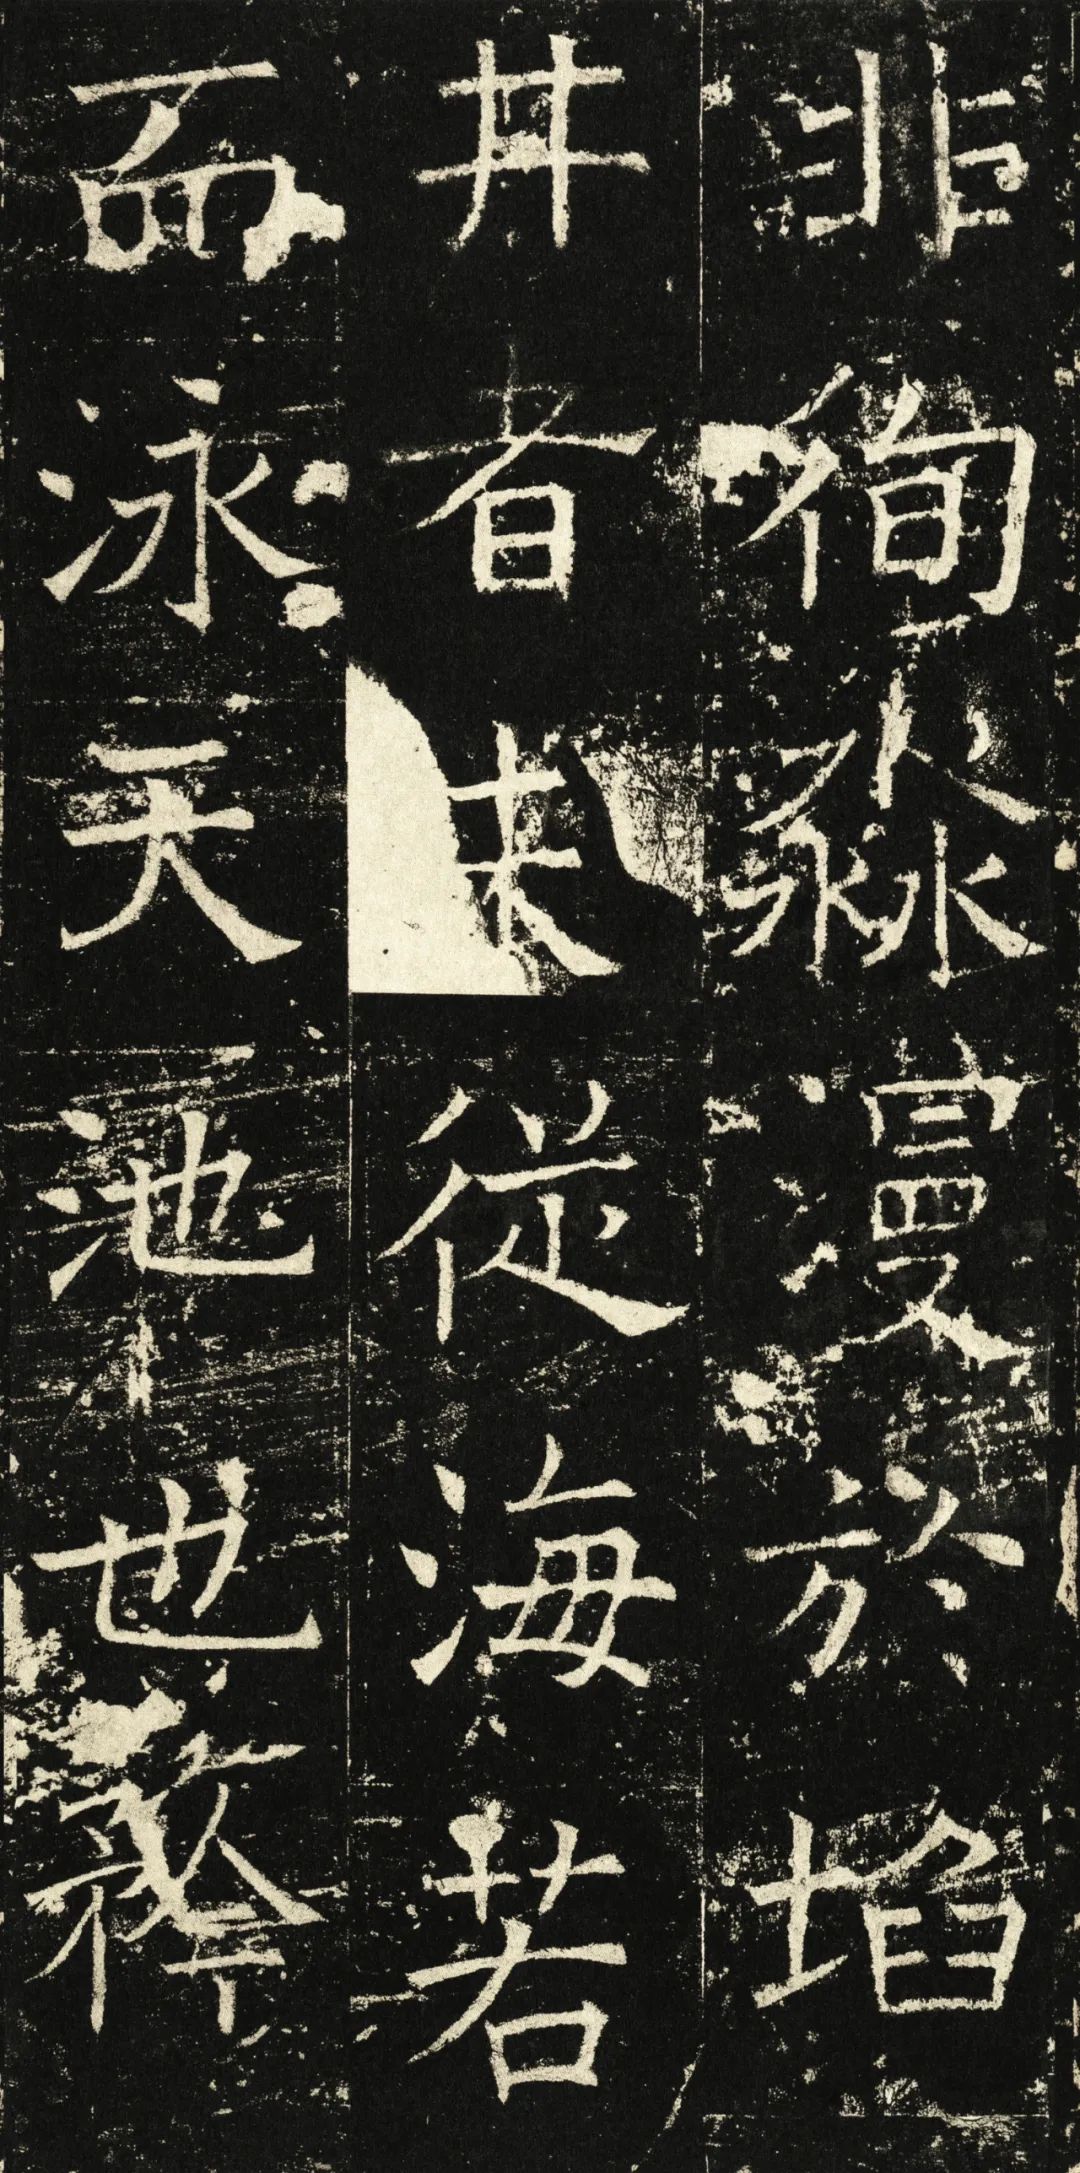 非徇淼漫於埳
井者未從海若
而泳天池也